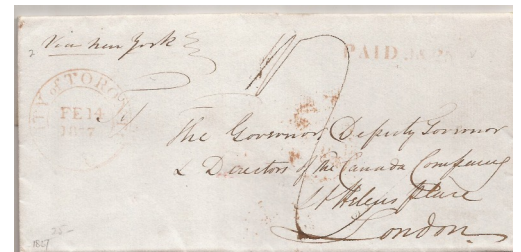 Via New York
PAID
CITY of TORONTO
FE 14
1837
The Governor, Deputy Governor
& Directors of the Canada Company
St Helens Place
London